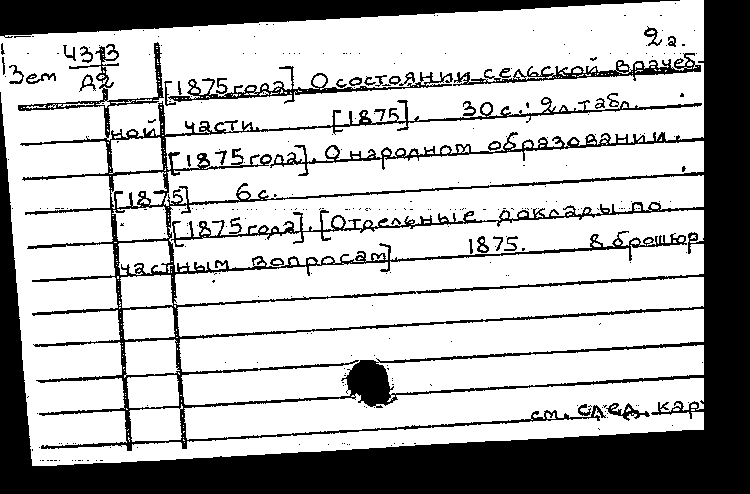 2 г.
Зем 4313
Д2
[1875 года]. О состоянии сельской врачеб-
ной части. [1875]. 30 с.; 2 л. табл.
[1875 года]. О народном образовании.
[1875] 6 с.
[1875 года]. [Отдельные доклады по
частным вопросам]. 1875. 8 брошюр.
см. след. кар